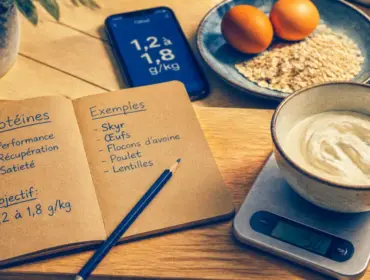 Protéines
Performance
Récupération
Satieté
Objectif:
1,2 à 1,8 g/kg
Exemples
- Skyr
- Œufs
- Flocons d'avoine
- Poulet
- Lentilles
1,2 à
1,8
g/kg